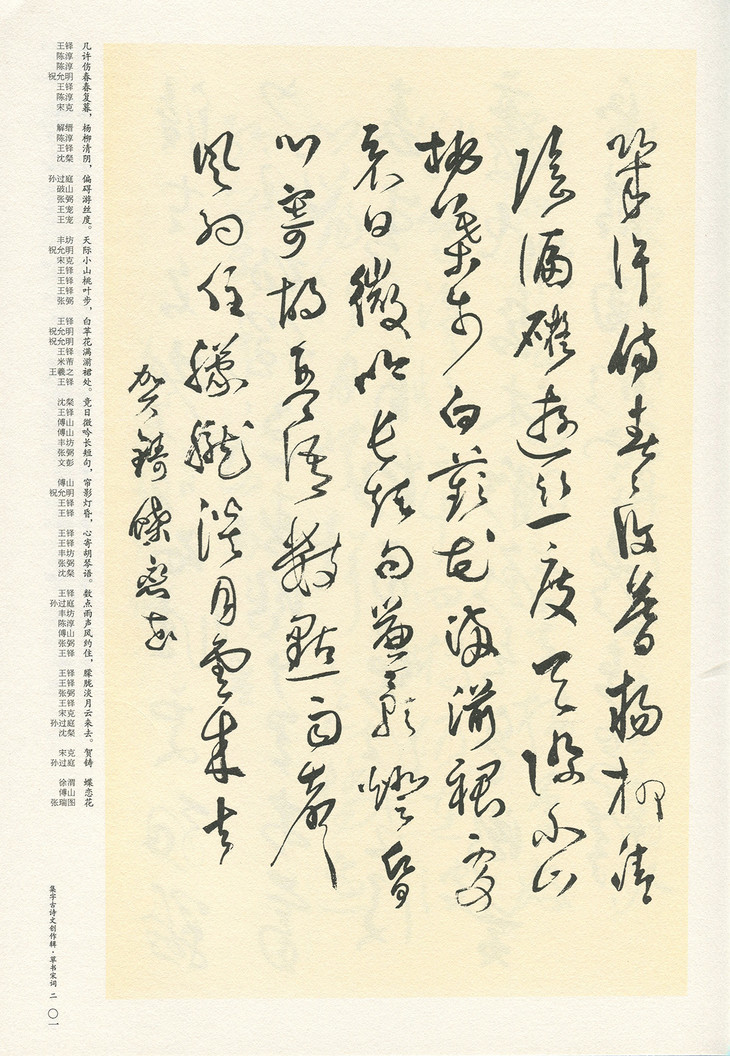 幾許傷春春復暮楊柳清
陰偏礙遊絲度天際小山
桃葉步白蘋花滿湔裙處
竟日微吟長短句簾影燈昏
心寄胡琴語數點雨聲
風約住朦朧淡月雲來去
賀鑄蝶恋花
几许伤春春复暮，杨柳清阴，偏碍游丝度。天际小山桃叶步，白苹花满湔裙处。竟日微吟长短句，帘影灯昏，心寄胡琴语。数点雨声风约住，朦胧淡月云来去。贺铸 蝶恋花
王铎 陈淳 陈淳 祝允明 王铎 陈淳 宋克 解缙 陈淳 王铎 沈粲 孙过庭 破山 张弼 王宠 王宠 丰坊 祝允明 宋克 王铎 王铎 王铎 张弼 王铎 祝允明 祝允明 王铎 米芾 王羲之 王铎 沈粲 王铎 傅山 傅山 丰坊 张弼 文彭 傅山 祝允明 王铎 王铎 王铎 王铎 丰坊 张弼 沈粲 王铎 孙过庭 丰坊 陈淳 傅山 张弼 王铎 王铎 王铎 张弼 王铎 宋克 孙过庭 沈粲 宋克 孙过庭 徐渭 傅山 张瑞图
集字古诗文创作辑·草书宋词 二
〇一